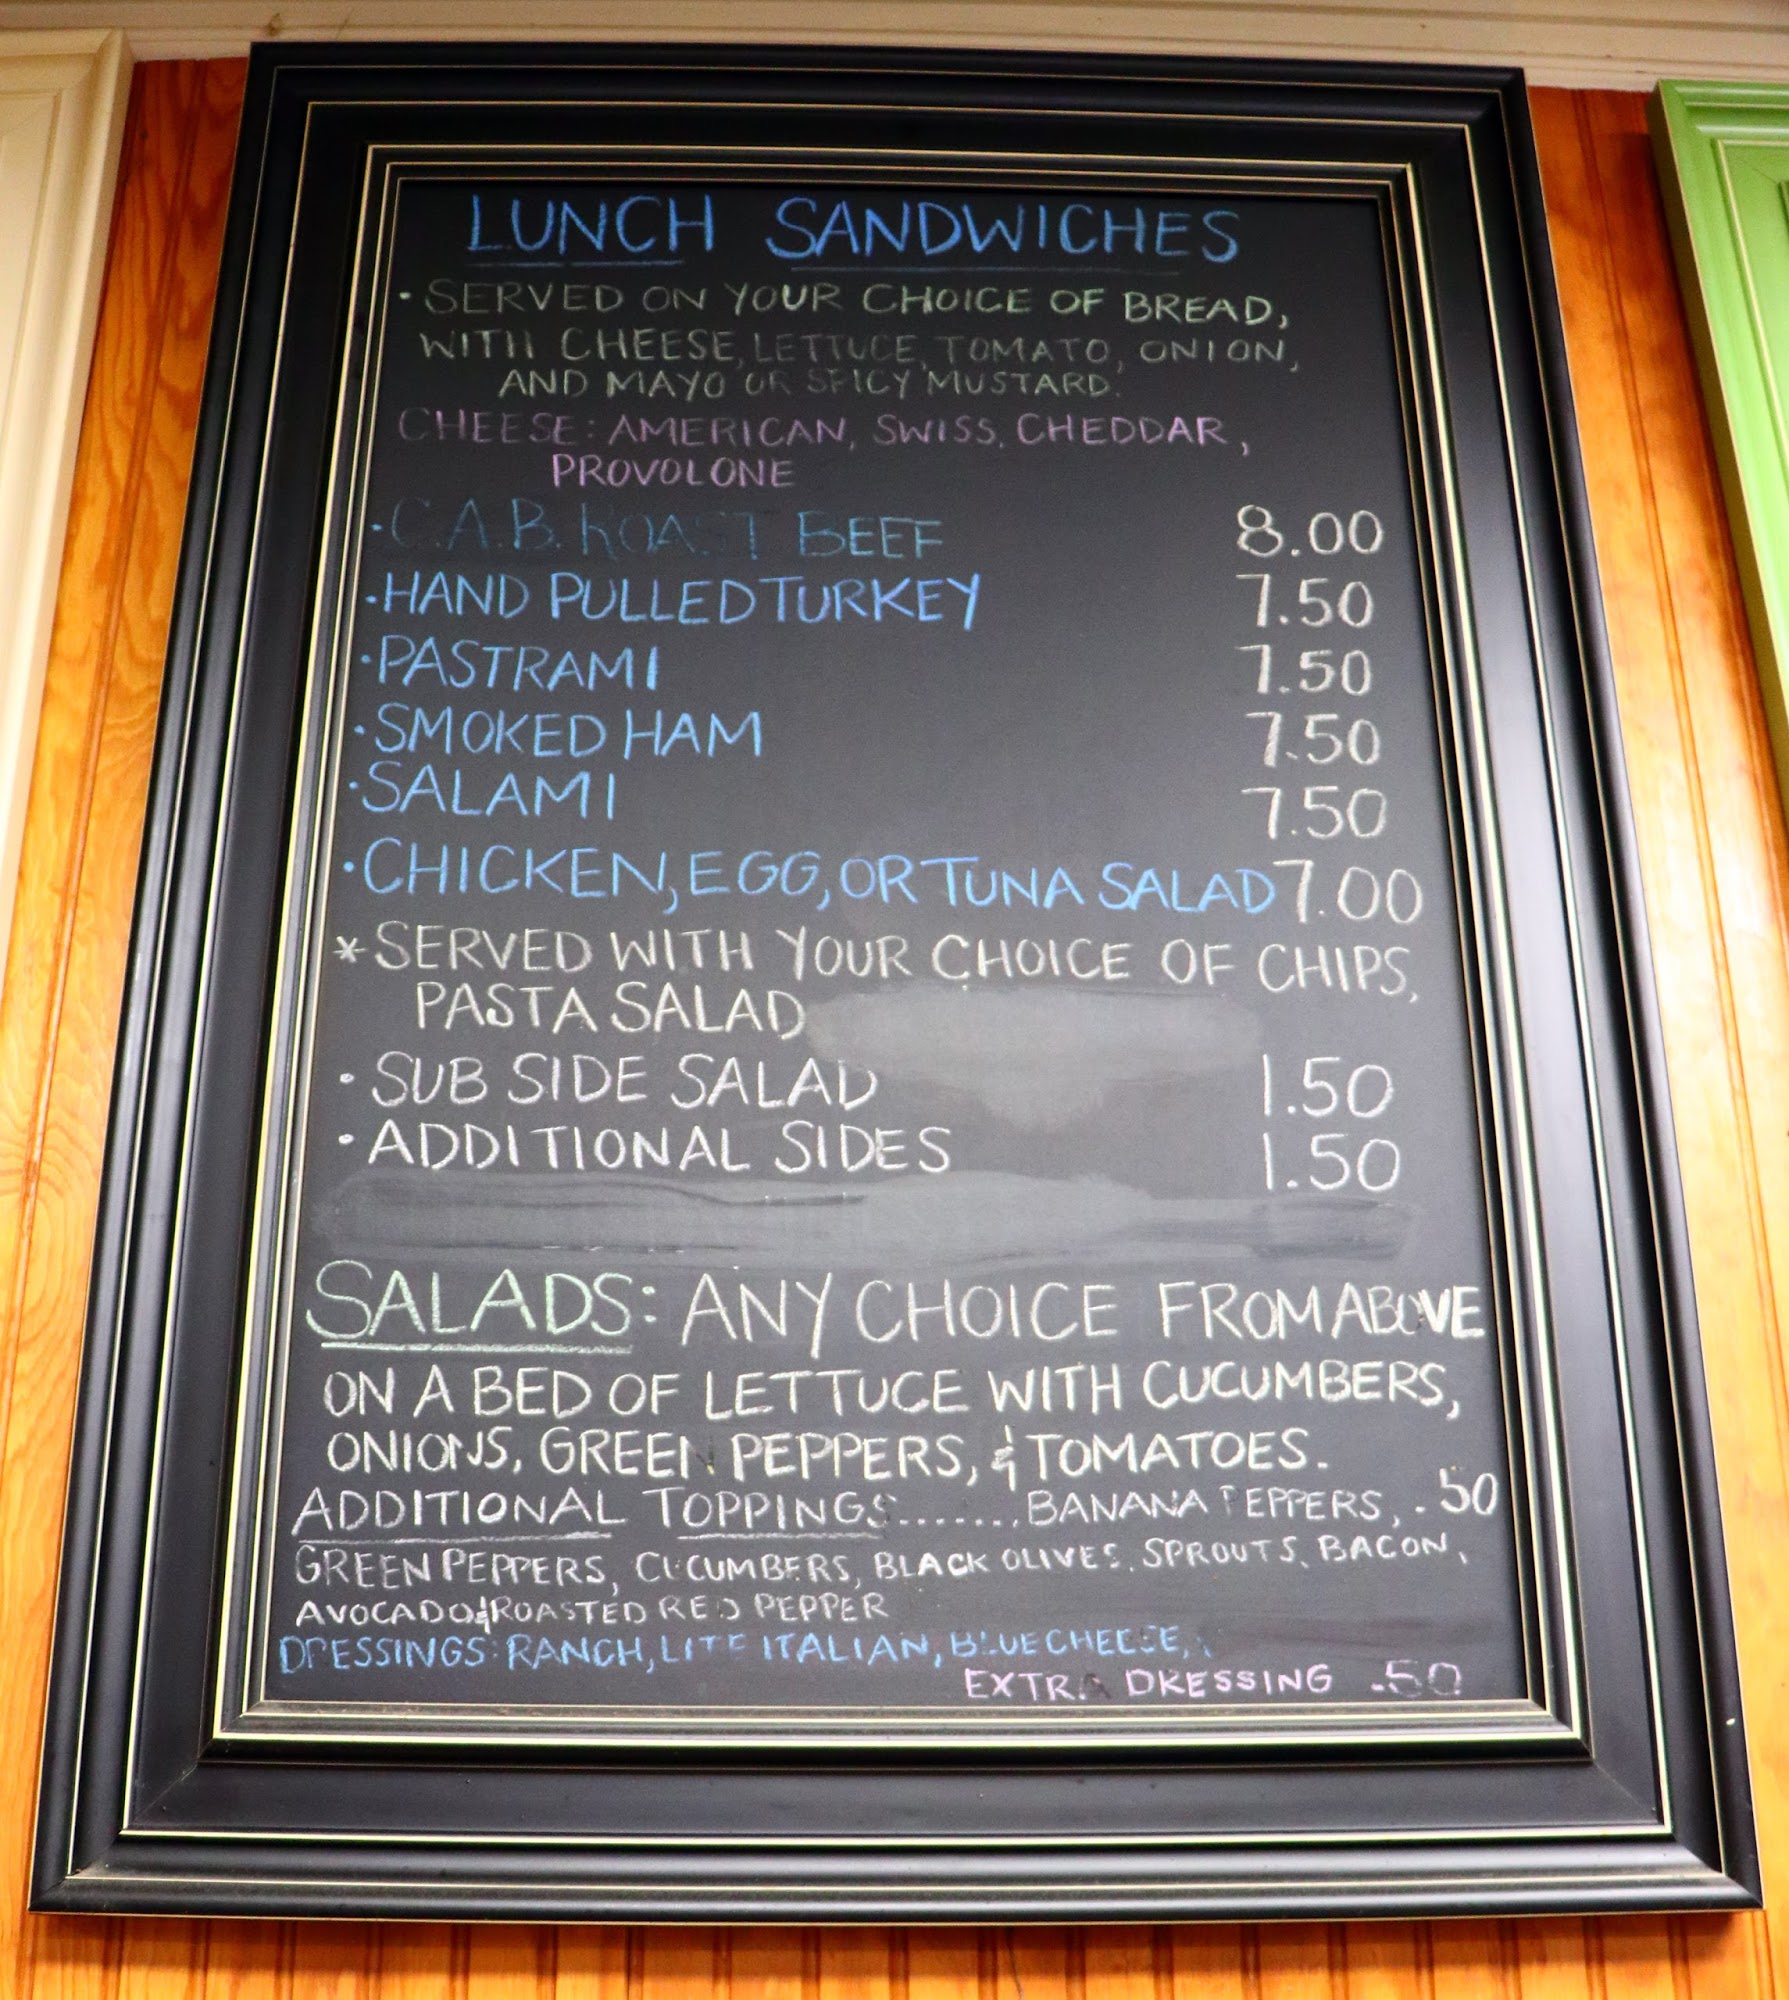 LUNCH SANDWICHES
· SERVED ON YOUR CHOICE OF BREAD,
WITH CHEESE, LETTUCE, TOMATO, ONION,
AND MAYO OR SPICY MUSTARD.
CHEESE: AMERICAN, SWISS, CHEDDAR,
PROVOLONE
· C.A.B. ROAST BEEF 8.00
· HAND PULLED TURKEY 7.50
· PASTRAMI 7.50
· SMOKED HAM 7.50
· SALAMI 7.50
· CHICKEN, EGG, OR TUNA SALAD 7.00
* SERVED WITH YOUR CHOICE OF CHIPS,
PASTA SALAD
· SUB SIDE SALAD 1.50
· ADDITIONAL SIDES 1.50
SALADS: ANY CHOICE FROM ABOVE
ON A BED OF LETTUCE WITH CUCUMBERS,
ONIONS, GREEN PEPPERS, & TOMATOES.
ADDITIONAL TOPPINGS....... BANANA PEPPERS, .50
GREEN PEPPERS, CUCUMBERS, BLACK OLIVES, SPROUTS, BACON,
AVOCADO & ROASTED RED PEPPER
DRESSINGS: RANCH, LITE ITALIAN, BLUE CHEESE,
EXTRA DRESSING .50